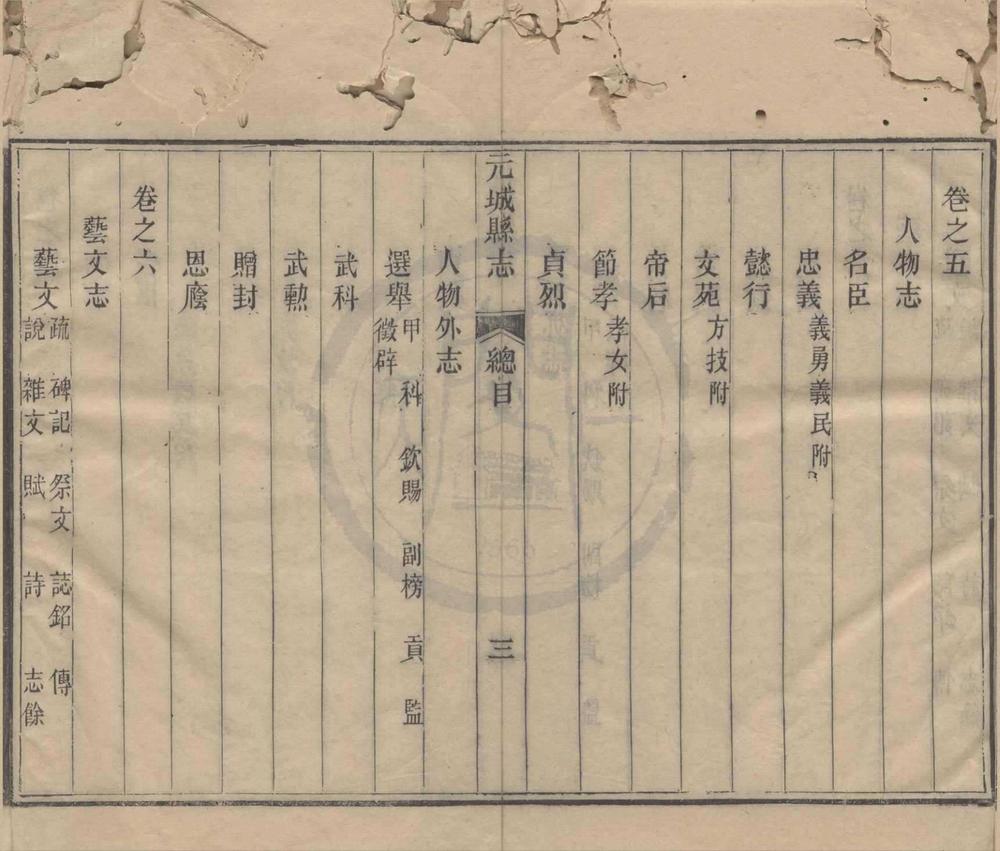 卷之五
人物志
名臣
忠義 義勇義民附
懿行
文苑 方技附
帝后
節孝 孝女附
貞烈
元城縣志 總目 三
人物外志
選舉 甲科 欽賜 副榜 貢 監
徵辟
武科
武勲
贈封
恩廕
卷之六
藝文志
藝文 疏 碑記 祭文 誌銘 傳
說 雜文 賦 詩 志餘